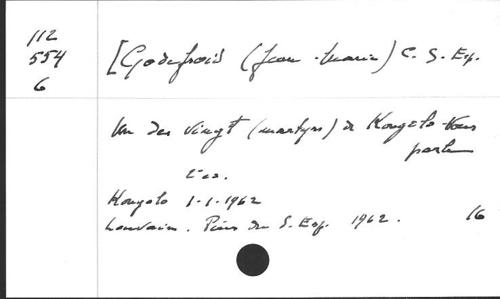 112
554
6
[Godefroid (Jean-Marie) C. S. Esp.
Un des vingt (martyrs) de Kongolo vous
parle
Kongolo 1-1-1962
Louvain. Pères du S. Esp. 1962. 16